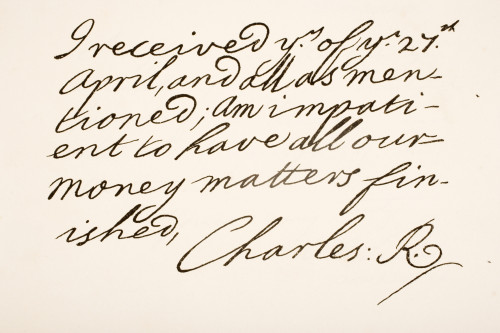 I received y.rs of y.r 27.th
April, and all as men-
tioned; am impati-
ent to have all our
money matters fin-
ished,
Charles: R.